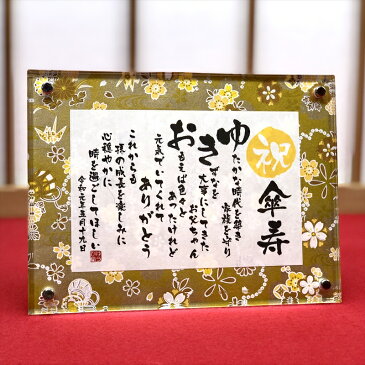 祝
傘寿
ゆたかな時代を築き
家族を守り
きずなを
大事にしてきた
お父ちゃん
おもえば色々
あったけれど
元気でいてくれて
ありがとう
これからも
孫の成長を楽しみに
心穏やかに
時を過ごしてほしい
令和元年五月十九日